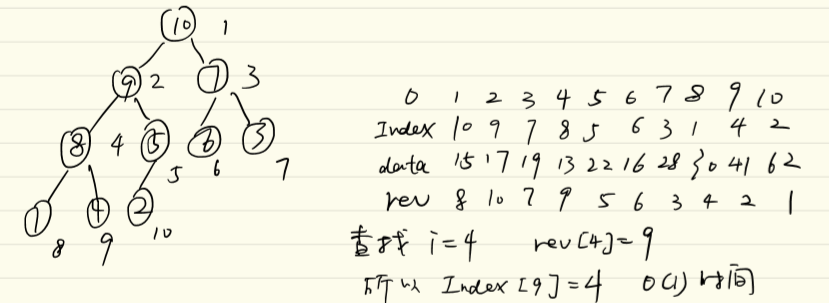 10 1
9 2 7 3
8 4 5 5 6 6 3 7
1 8 4 9 2 10
0 1 2 3 4 5 6 7 8 9 10
Index 10 9 7 8 5 6 3 1 4 2
data 15 17 19 13 22 16 28 30 41 62
rev 8 10 7 9 5 6 3 4 2 1
查找 i=4 rev[4]=9
所以 Index[9]=4 O(1)时间